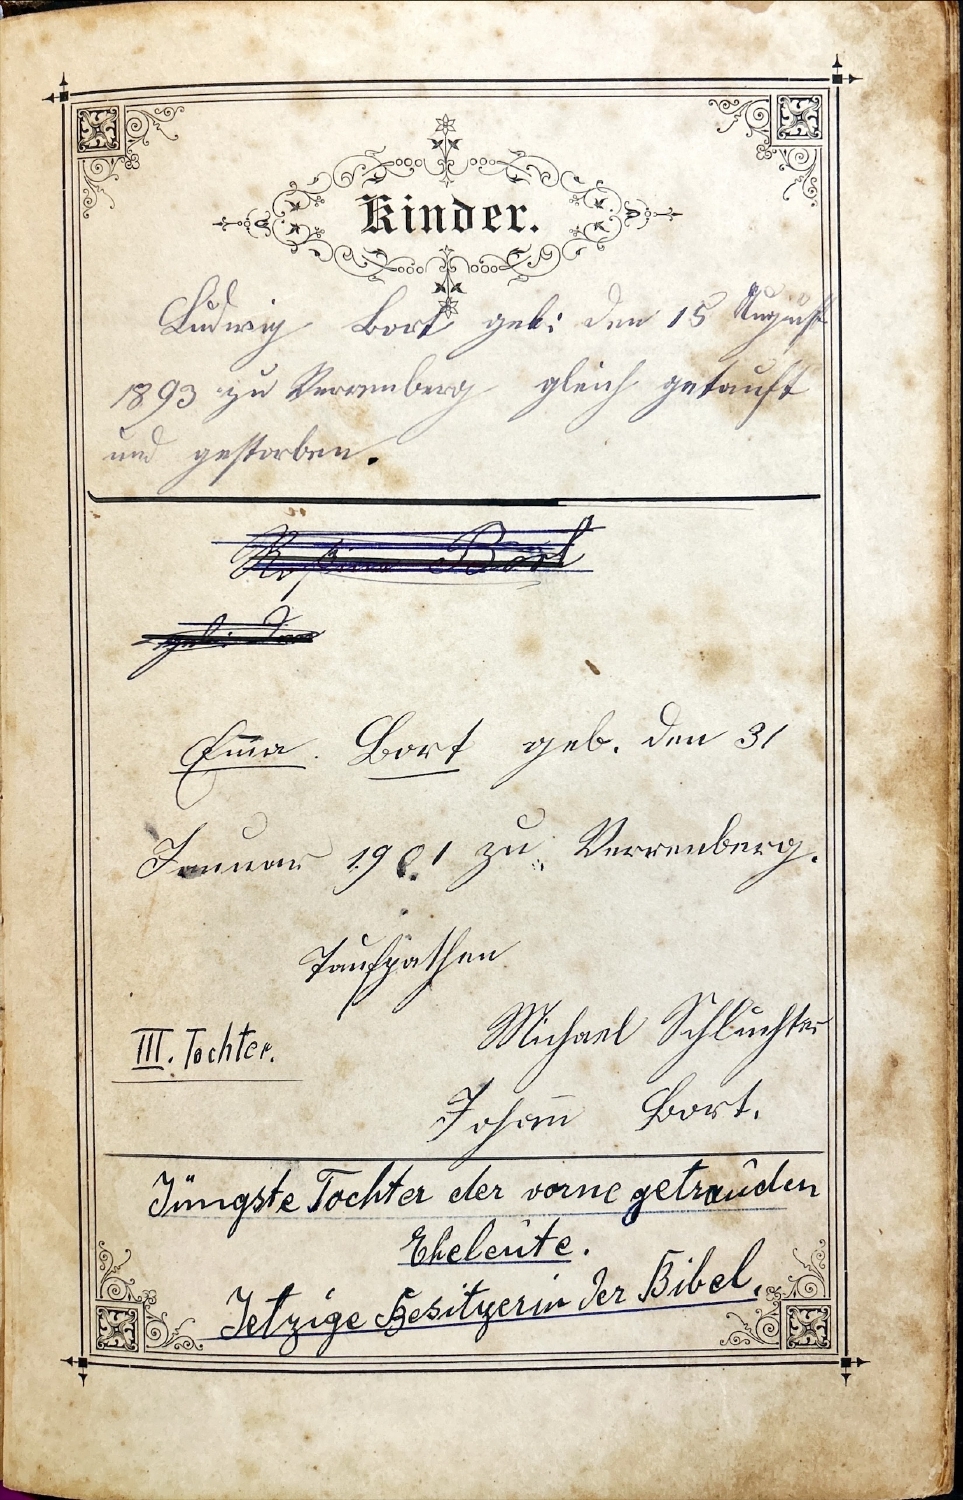 Kinder.
Ludwig Bort geb: den 15 August
1893 zu Verrenberg gleich getauft
und gestorben.
Rosine Bort
geb: den
Em̅a Bort geb. den 31
Januar 1901 zu Verrenberg.
Taufpathen
Michael Schluchter
III. Tochter.
Johan̅ Bort.
Jüngste Tochter der vorne getrauden
Eheleute.
Jetzige Besitzerin der Bibel.